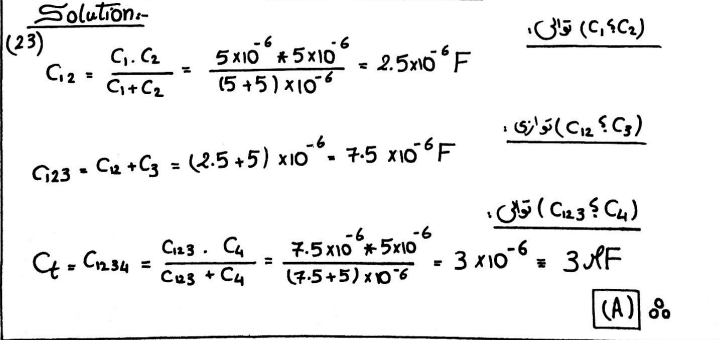 Solution:-
(23)
(C₁ و C₂) توالى :
C₁₂ = (C₁ . C₂)/(C₁ + C₂) = (5×10⁻⁶ * 5×10⁻⁶)/((5+5)×10⁻⁶) = 2.5×10⁻⁶ F
(C₁₂ و C₃) توازى :
C₁₂₃ = C₁₂ + C₃ = (2.5+5) ×10⁻⁶ = 7.5 ×10⁻⁶ F
(C₁₂₃ و C₄) توالى :
Cₜ = C₁₂₃₄ = (C₁₂₃ . C₄)/(C₁₂₃ + C₄) = (7.5×10⁻⁶ * 5×10⁻⁶)/((7.5+5)×10⁻⁶) = 3 ×10⁻⁶ = 3 μF
(A) ∴